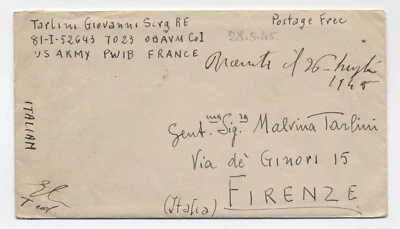 Tarlini Giovanni Serg RE
Postage Free
81-I-52643 7023 OBAVM CoI
28.5.45
US ARMY PWIB FRANCE
il 26
1945
ITALIAN
Gent.ma Sig.ra Malvina Tarlini
Via de' Ginori 15
FIRENZE
(Italia)